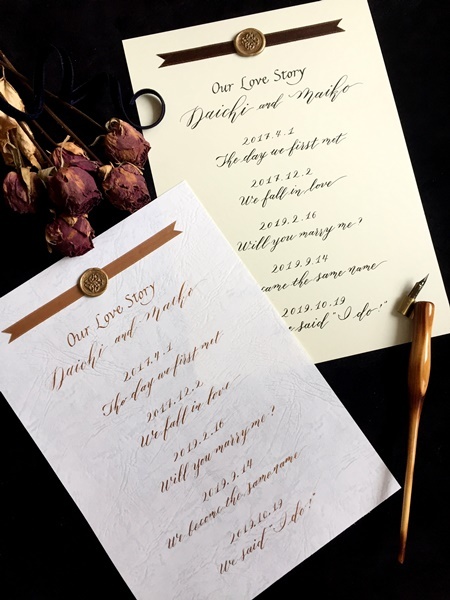 Our Love Story
Daichi and Maiko
2017.4.1
The day we first met
2017.12.2
We fall in love
2019.2.16
Will you marry me?
2019.9.14
came the same name
2019.10.19
e said "I do!"
Our Love Story
Daichi and Maiko
2017.4.1
The day we first met
2017.12.2
We fall in love
2019.2.16
Will you marry me?
2019.9.14
We become the same name
2019.10.19
We said "I do!"